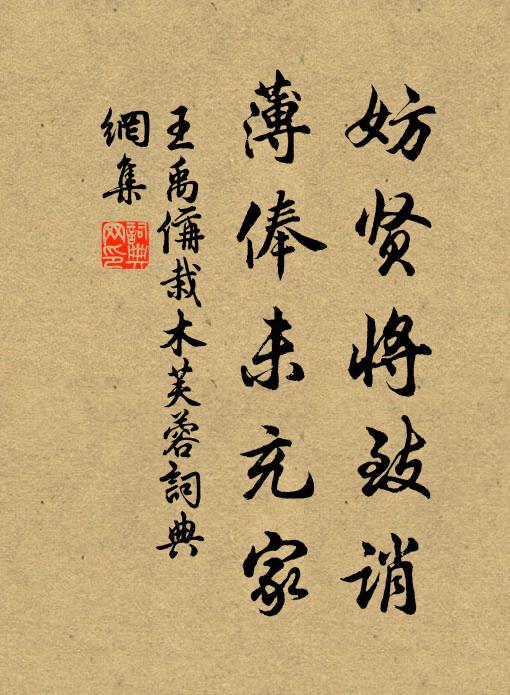 妨贤将致诮
薄俸未充家
王禹偁栽木芙蓉詞典
網集
詞典
网印